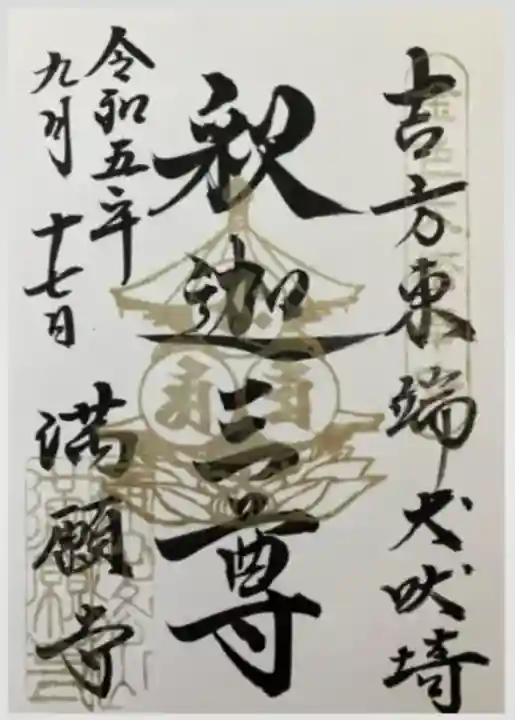 吉方東端犬吠埼
釈迦三尊
令和五年
九月十七日
満願寺